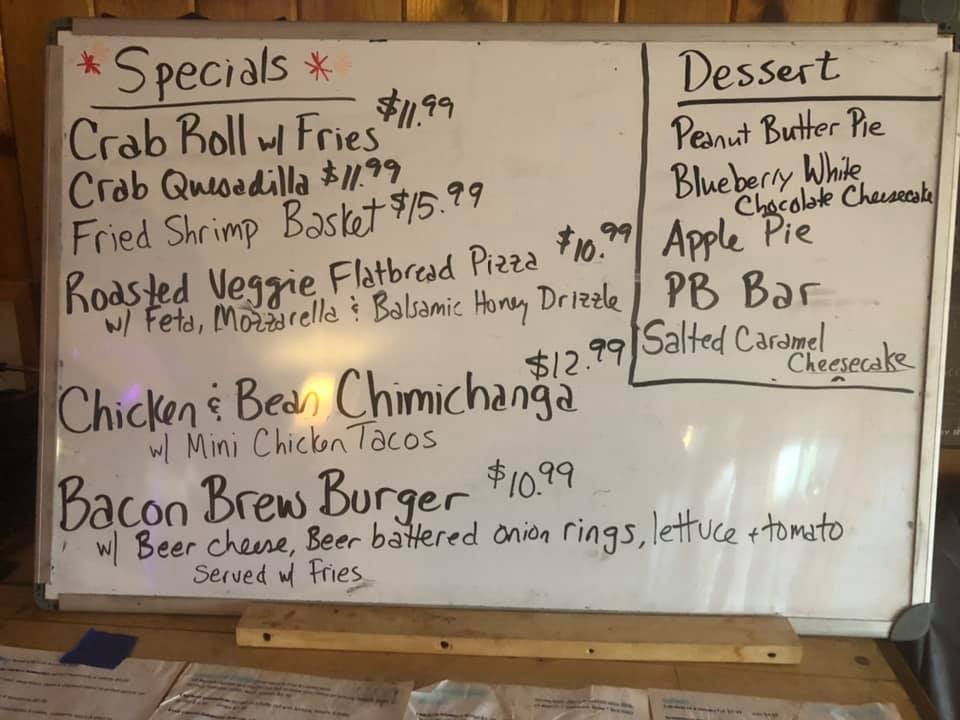 * Specials *
Crab Roll w/ Fries $11.99
Crab Quesadilla $11.99
Fried Shrimp Basket $15.99
Roasted Veggie Flatbread Pizza $10.99
w/ Feta, Mozzarella & Balsamic Honey Drizzle
$12.99
Chicken & Bean Chimichanga
w/ Mini Chicken Tacos
Bacon Brew Burger $10.99
w/ Beer cheese, Beer battered onion rings, lettuce + tomato
Served w/ Fries
Dessert
Peanut Butter Pie
Blueberry White
Chocolate Cheesecake
Apple Pie
PB Bar
Salted Caramel
Cheesecake